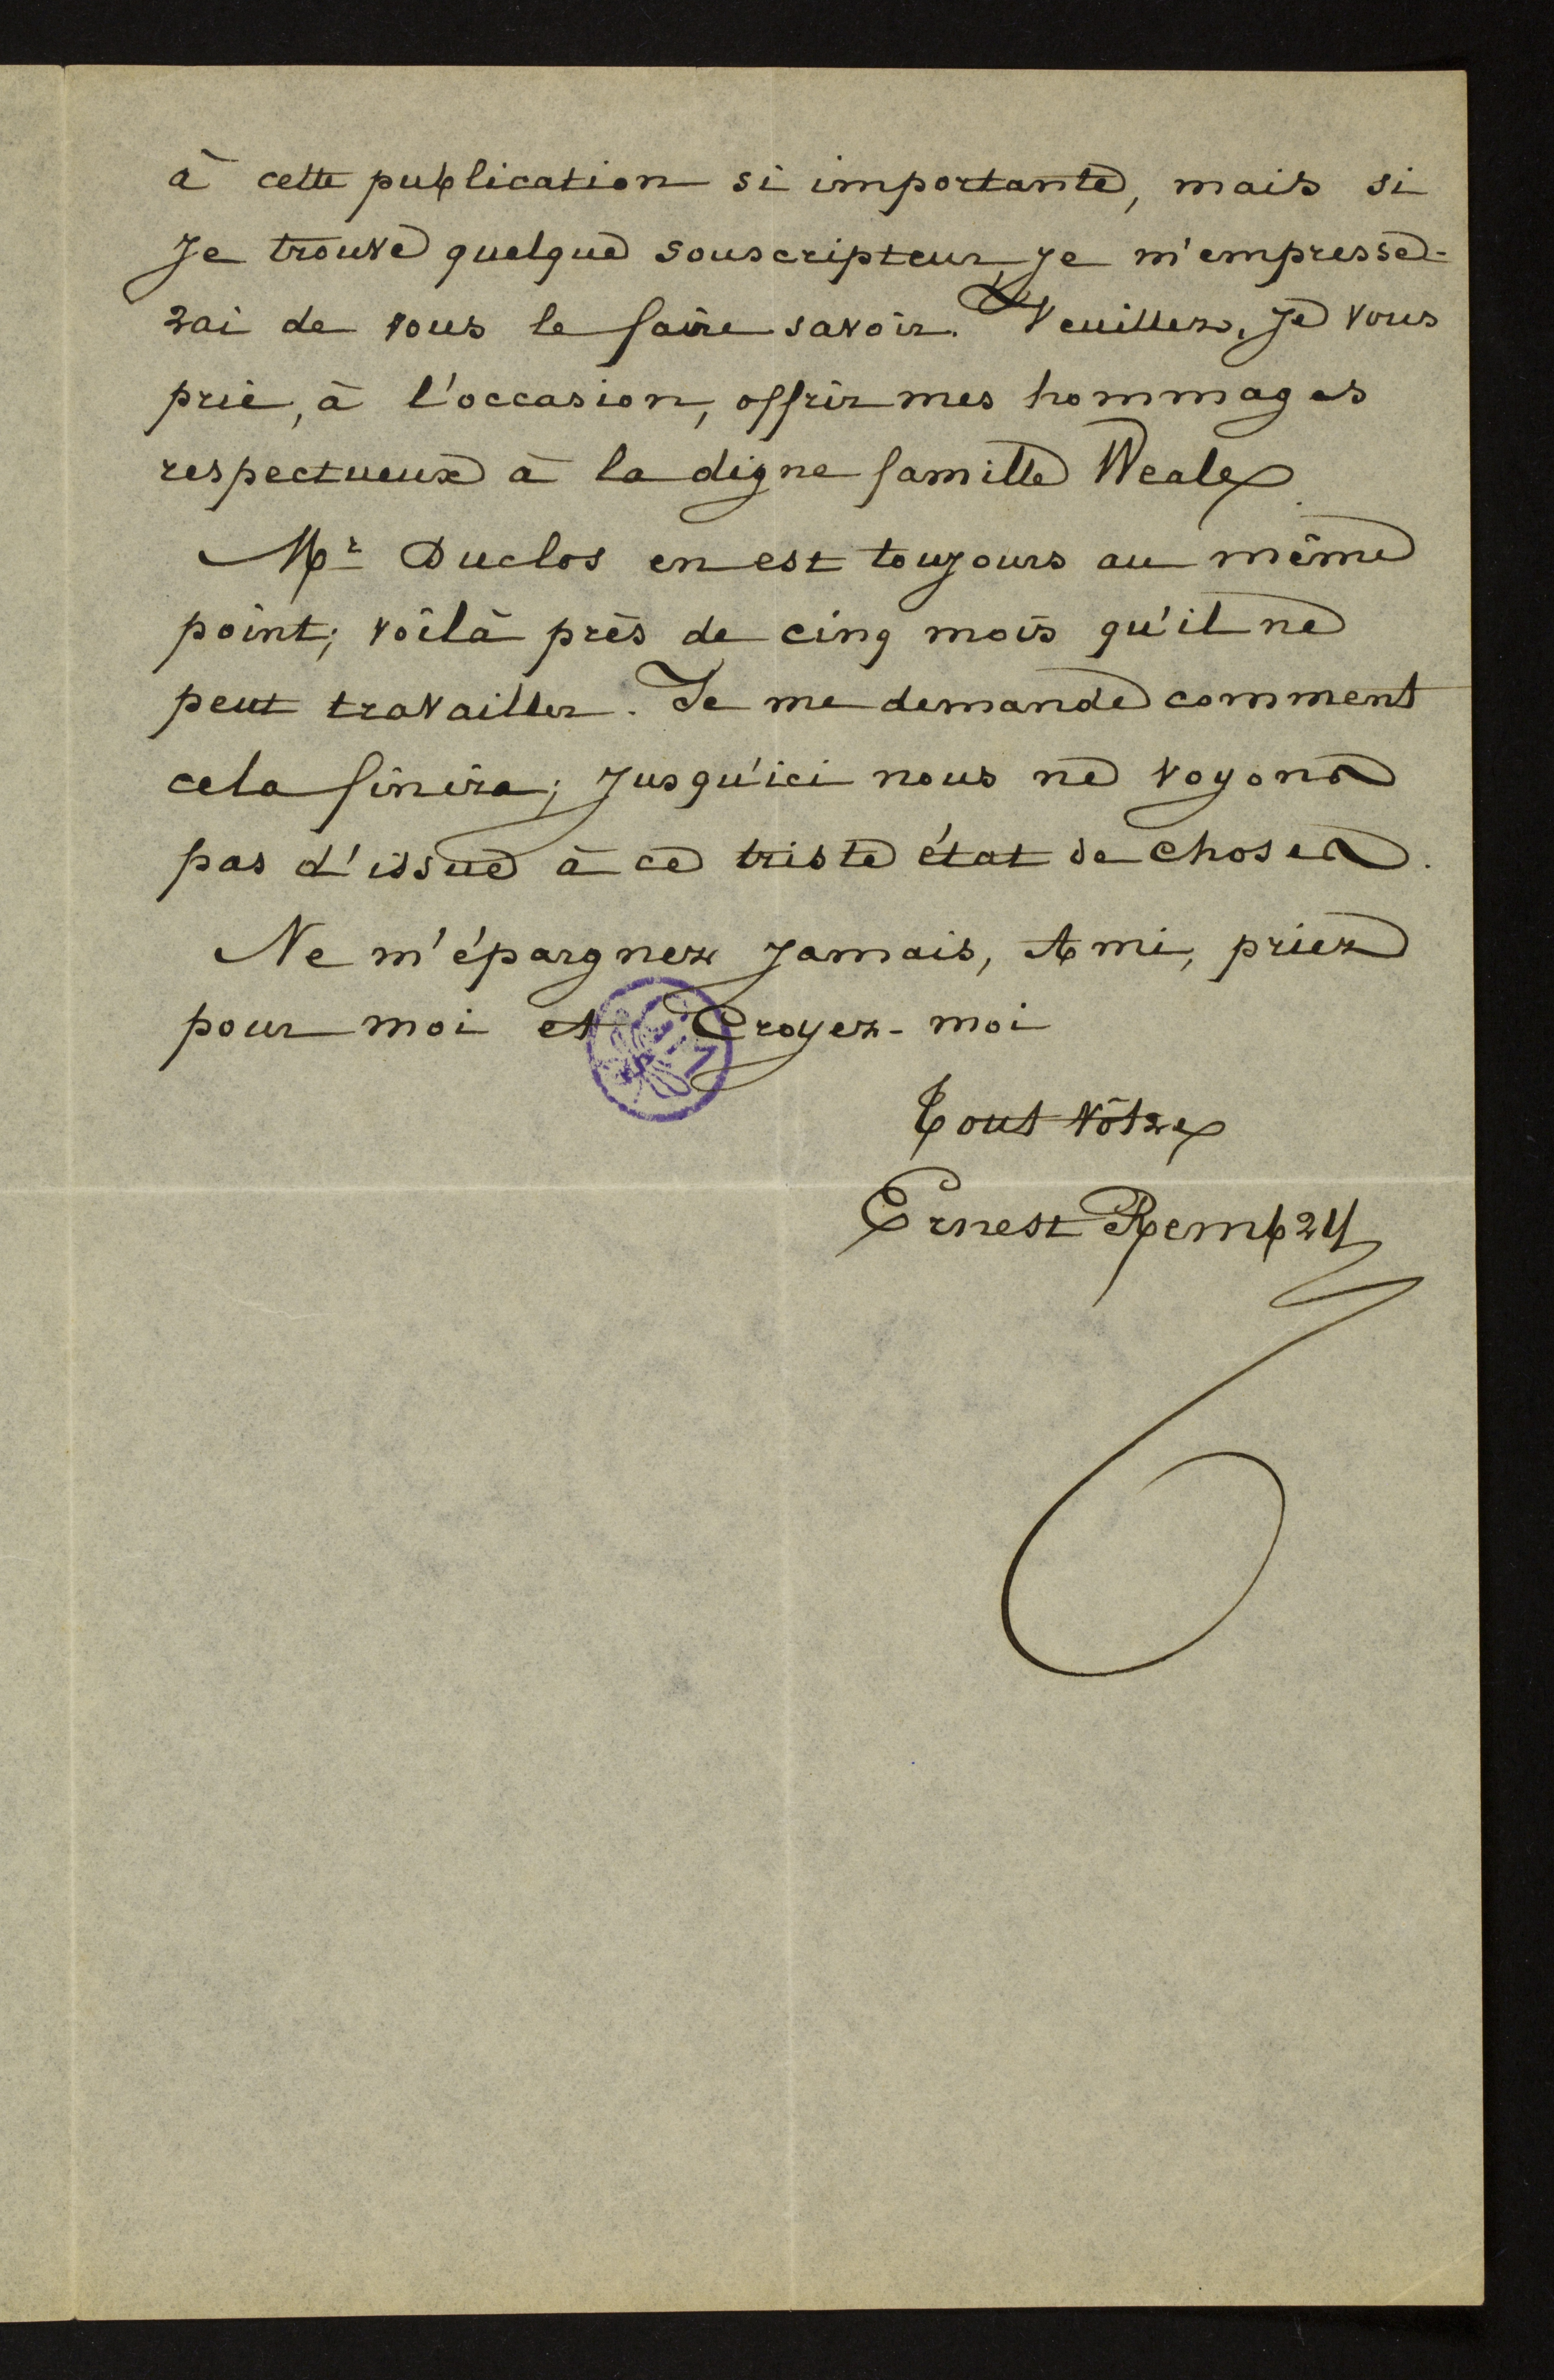 à cette publication si importante, mais si
je trouve quelque souscripteur, je m'empresse-
rai de vous le faire savoir. Veuillez, je vous
prie, à l'occasion, offrir mes hommages
respectueux à la digne famille Weale
Mr Duclos en est toujours au même
point; voilà près de cinq mois qu'il ne
peut travailler. Je me demande comment
cela finira; jusqu'ici nous ne voyons
pas d'issue à ce triste état de choses.
Ne m'épargnez jamais, Ami, priez
pour moi et Croyez-moi
Tout vôtre
Ernest Rembry